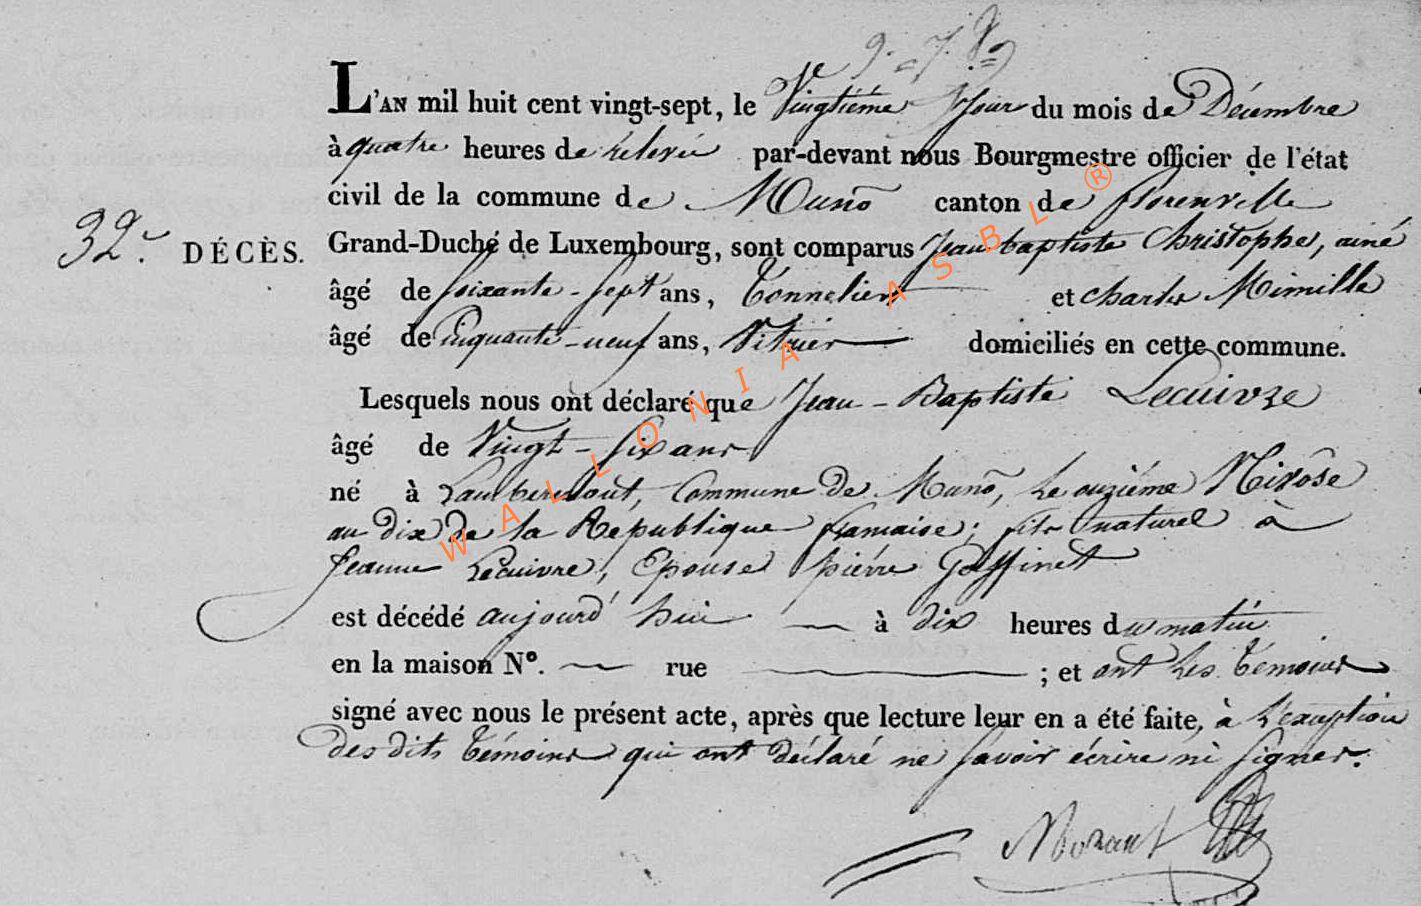 9. = 7. 8=
L'AN mil huit cent vingt-sept, le Vingtiéme Jour du mois de Décembre
à quatre heures de rélevée par-devant nous Bourgmestre officier de l'état
civil de la commune de Muno canton de florenville
32e. DÉCÈS. Grand-Duché de Luxembourg, sont comparus Jean baptiste Christophe, ainé
âgé de soixante-sept ans, Tonnelier et charles Mimille
âgé de Cinquante-neuf ans, Vitrier domiciliés en cette commune.
Lesquels nous ont déclaré que Jean-Baptiste Lecuivre
âgé de Vingt-six ans
né à Lambermont, Commune de Muno, Le onziéme Nivôse
au dix de la République francaise; fils naturel à
Jeanne Lecuivre, Epouse pierre Goffinet
est décédé aujourd'hui à dix heures du matin
en la maison N°. rue ; et ont Les témoins
signé avec nous le présent acte, après que lecture leur en a été faite, à L'exception
des dits témoins qui ont déclaré ne savoir écrire ni signer.
Morant
WALLONIA ASBL ®